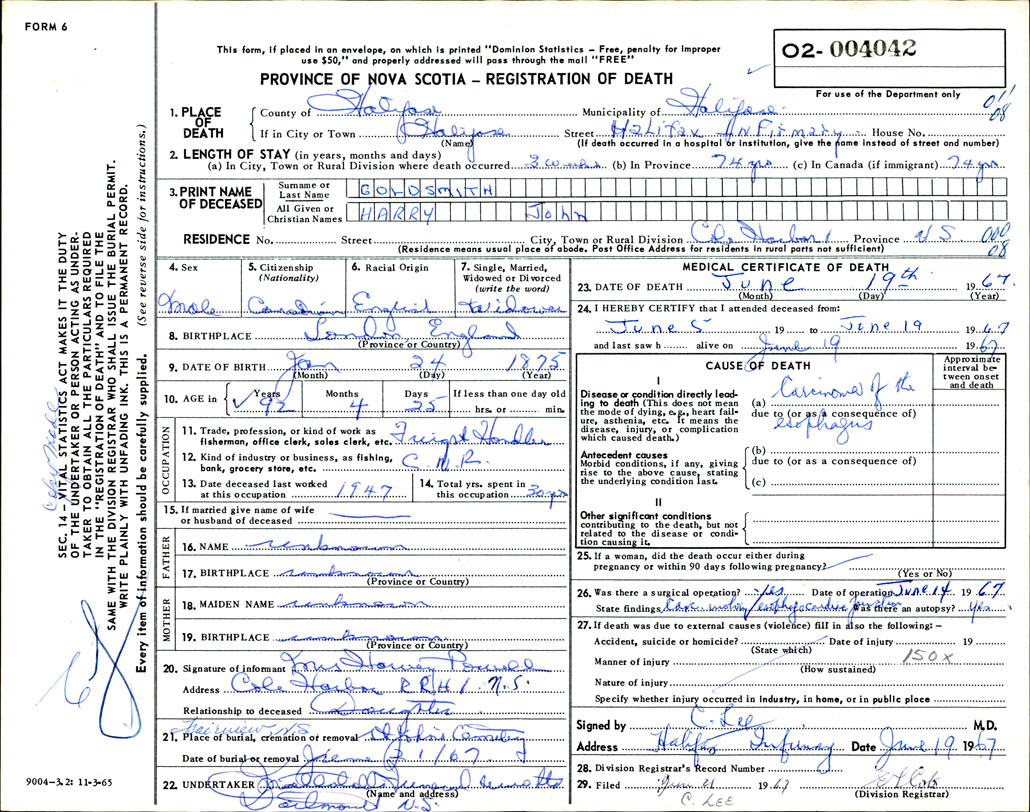 FORM 6
This form, if placed in an envelope, on which is printed "Dominion Statistics – Free, penalty for improper
use $50," and properly addressed will pass through the mail "FREE"
PROVINCE OF NOVA SCOTIA – REGISTRATION OF DEATH
02- 004042
For use of the Department only
011
08
1. PLACE OF DEATH
County of Halifax Municipality of Halifax
If in City or Town Halifax Street Halifax Infirmary House No.
(Name) (If death occurred in a hospital or institution, give the name instead of street and number)
2. LENGTH OF STAY (in years, months and days)
(a) In City, Town or Rural Division where death occurred 3 weeks (b) In Province 74 yrs (c) In Canada (if immigrant) 74 yrs
3. PRINT NAME OF DECEASED
Surname or Last Name GOLDSMITH
All Given or Christian Names HARRY John
RESIDENCE No. Street City, Town or Rural Division Cole Harbour Province N S 000
08
(Residence means usual place of abode. Post Office Address for residents in rural parts not sufficient)
4. Sex
Male
5. Citizenship (Nationality)
Canadian
6. Racial Origin
English
7. Single, Married, Widowed or Divorced (write the word)
Widower
8. BIRTHPLACE London England
(Province or Country)
9. DATE OF BIRTH Jan 24 1875
(Month) (Day) (Year)
10. AGE in Years 92 Months 4 Days 25 If less than one day old
hrs. or min.
OCCUPATION
11. Trade, profession, or kind of work as fisherman, office clerk, sales clerk, etc. Freight Handler
12. Kind of industry or business, as fishing, bank, grocery store, etc. C.N.R.
13. Date deceased last worked at this occupation 1947
14. Total yrs. spent in this occupation 30 yrs
15. If married give name of wife or husband of deceased
FATHER
16. NAME unknown
17. BIRTHPLACE unknown
(Province or Country)
MOTHER
18. MAIDEN NAME unknown
19. BIRTHPLACE unknown
(Province or Country)
20. Signature of informant Mrs Powell
Address Cole Harbor R R # 1 N.S.
Relationship to deceased Daughter
Fairview, N.S.
21. Place of burial, cremation or removal St Johns Cemetery
Date of burial or removal June 21/67
22. UNDERTAKER Funeral
(Name and address)
N.S.
MEDICAL CERTIFICATE OF DEATH
23. DATE OF DEATH June 19th 1967
(Month) (Day) (Year)
24. I HEREBY CERTIFY that I attended deceased from:
June 5 19 to June 19 1967
and last saw h alive on June 19 1967
CAUSE OF DEATH
Approximate interval between onset and death
I
Disease or condition directly leading to death (This does not mean the mode of dying, e.g., heart failure, asthenia, etc. It means the disease, injury, or complication which caused death.)
(a) Carcinoma of the
due to (or as a consequence of)
esophagus
Antecedent causes
Morbid conditions, if any, giving rise to the above cause, stating the underlying condition last.
(b)
due to (or as a consequence of)
(c)
II
Other significant conditions
contributing to the death, but not related to the disease or condition causing it.
25. If a woman, did the death occur either during
pregnancy or within 90 days following pregnancy?
(Yes or No)
26. Was there a surgical operation? yes Date of operation June 14 1967
State findings Was there an autopsy? yes
27. If death was due to external causes (violence) fill in also the following: –
Accident, suicide or homicide? Date of injury 19
(State which)
Manner of injury 150X
(How sustained)
Nature of injury
Specify whether injury occurred in Industry, in home, or in public place
Signed by C. Lee M.D.
Address Halifax Infirmary Date June 19 1967
28. Division Registrar's Record Number
29. Filed June 21 1967
(Division Registrar)
C. LEE
SEC. 14 – VITAL STATISTICS ACT MAKES IT THE DUTY
OF THE UNDERTAKER OR PERSON ACTING AS UNDER-
TAKER TO OBTAIN ALL THE PARTICULARS REQUIRED
IN THE "REGISTRATION OF DEATH" AND TO FILE THE
SAME WITH THE DIVISION REGISTRAR WHO SHALL ISSUE THE BURIAL PERMIT.
WRITE PLAINLY WITH UNFADING INK. THIS IS A PERMANENT RECORD.
Every item of information should be carefully supplied. (See reverse side for instructions.)
9004-3.2: 11-3-65